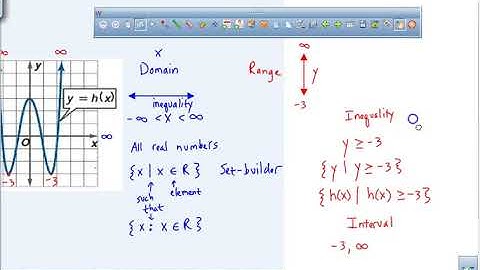 ∞ ∞
y
y = h(x)
x ∞
O
-3 -3
x
Domain
inequality
-∞ < x < ∞
All real numbers
{x | x ∈ R} Set-builder
such that
element
{x : x ∈ R}
Range
∞
y
-3
Inequality
y ≥ -3
{y | y ≥ -3}
{h(x) | h(x) ≥ -3}
Interval
-3, ∞